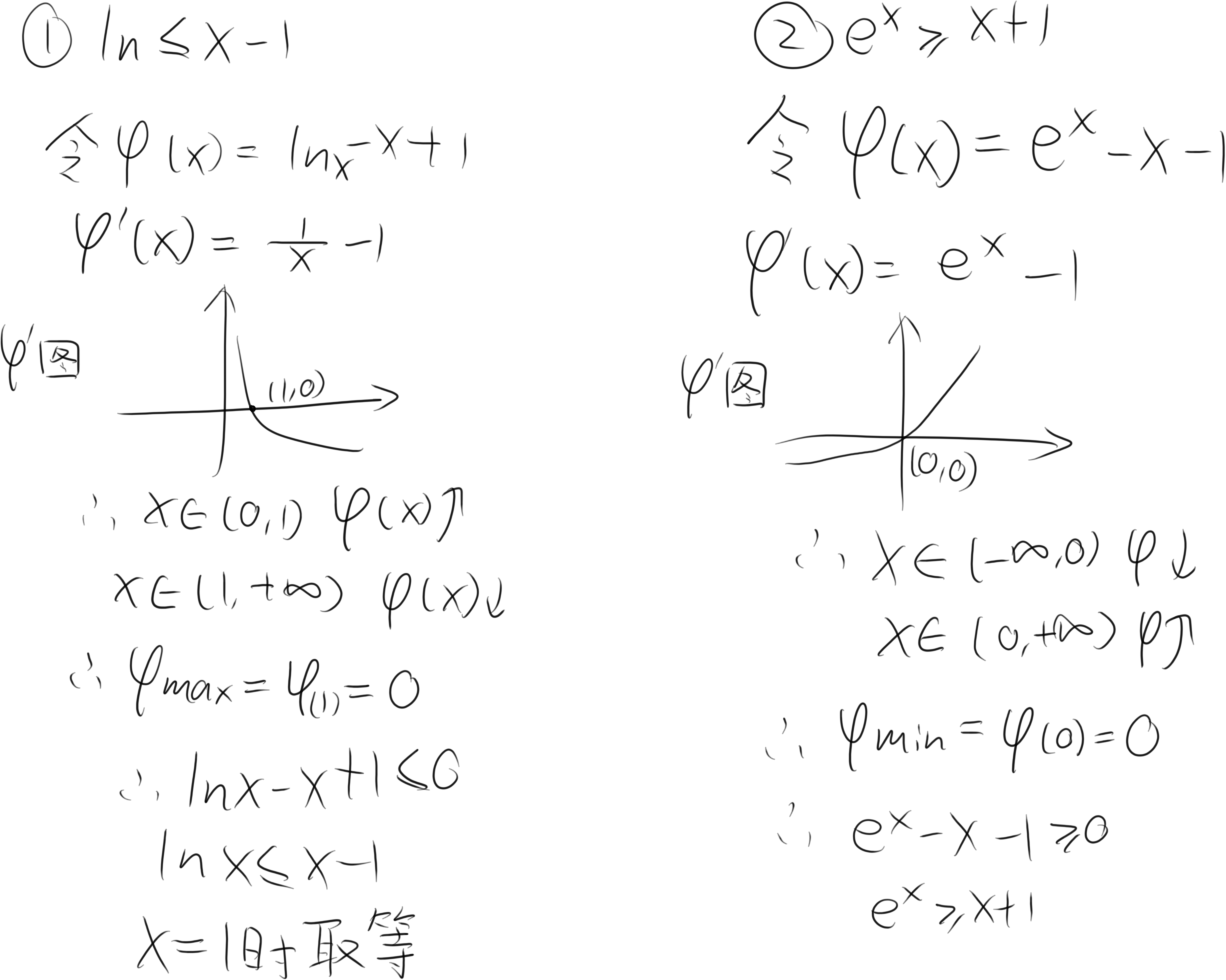 ① ln ≤ x-1
令 φ(x) = lnx-x+1
φ'(x) = 1/x -1
φ'图
(1,0)
∴ x∈(0,1) φ(x)↑
x∈(1,+∞) φ(x)↓
∴ φmax = φ(1) = 0
∴ lnx-x+1≤0
lnx≤x-1
x=1时取等
② e^x ≥ x+1
令 φ(x) = e^x-x-1
φ'(x) = e^x -1
φ'图
(0,0)
∴ x∈(-∞,0) φ↓
x∈(0,+∞) φ↑
∴ φmin = φ(0) = 0
∴ e^x-x-1≥0
e^x≥x+1